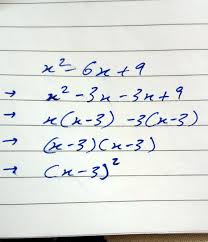 x² - 6x + 9
→ x² - 3x - 3x + 9
→ x(x-3) - 3(x-3)
→ (x-3)(x-3)
→ (x-3)²